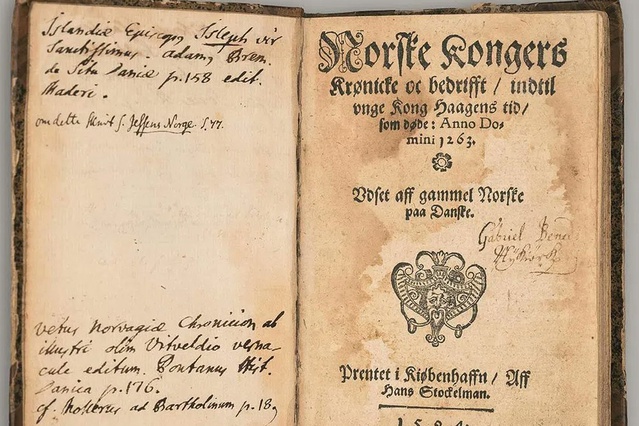 Islandiæ Episcopus Isleph vir
Sanctissimus. adam Brem.
de Situ Daniæ p.158 edit.
Maderi.
om dette skrift s. Jessens Norge. S. 77.
vetus Norvagiæ Chronicon ab
illustri olim Vitveldio verna
cule editum. Pontanus Hist.
Danica p.176.
cf. Mollerus ad Bartholinum p.18
Norske Kongers
Krønicke oc bedrifft / indtil
vnge Kong Haagens tid /
som døde: Anno Do-
mini 1263.
Vdset aff gammel Norske
paa Danske.
Gabriel
Prentet i Kiøbenhaffn / Aff
Hans Stockelman.
1594.